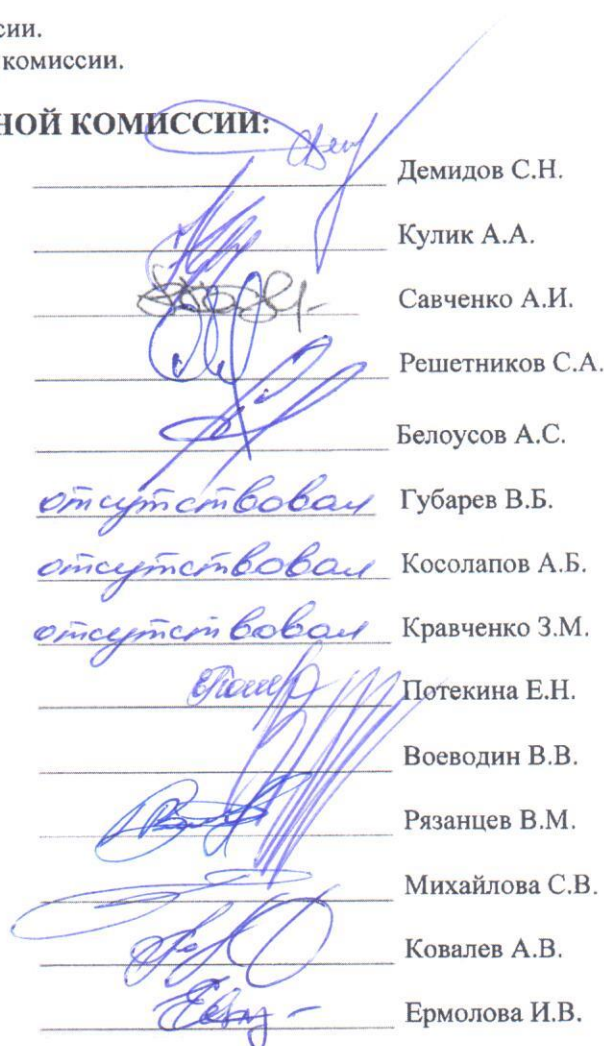 сии.
комиссии.
НОЙ КОМИССИИ:
Демидов С.Н.
Кулик А.А.
Савченко А.И.
Решетников С.А.
Белоусов А.С.
отсутствовал Губарев В.Б.
отсутствовал Косолапов А.Б.
отсутствовал Кравченко З.М.
Потекина Е.Н.
Воеводин В.В.
Рязанцев В.М.
Михайлова С.В.
Ковалев А.В.
Ермолова И.В.